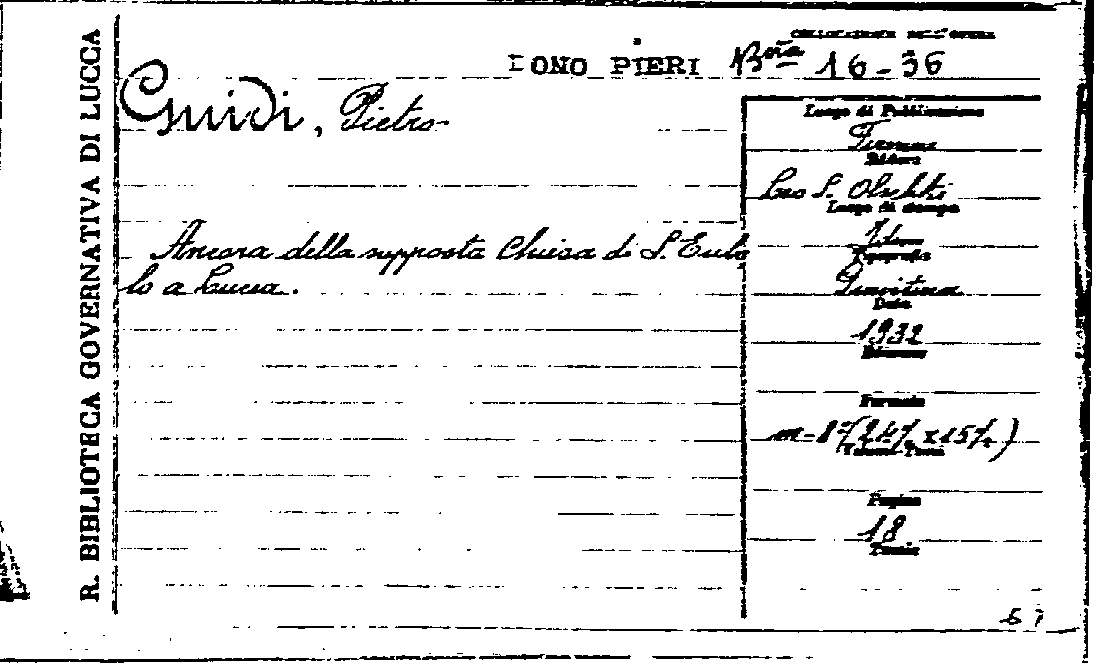 R. BIBLIOTECA GOVERNATIVA DI LUCCA
COLLOCAZIONE DELL'OPERA
DONO PIERI Bta 16-36
Guidi, Pietro
Luogo di Pubblicazione
Firenze
Editore
Leo S. Olschki
Luogo di stampa
Idem
Tipografia
Giuntina
Data
1932
Edizione
Formato
in-8°(24½ x 15½)
Volumi-Tomi
Pagine
18
Tavole
Ancora della supposta Chiesa di S. Eulo
lo a Lucca.